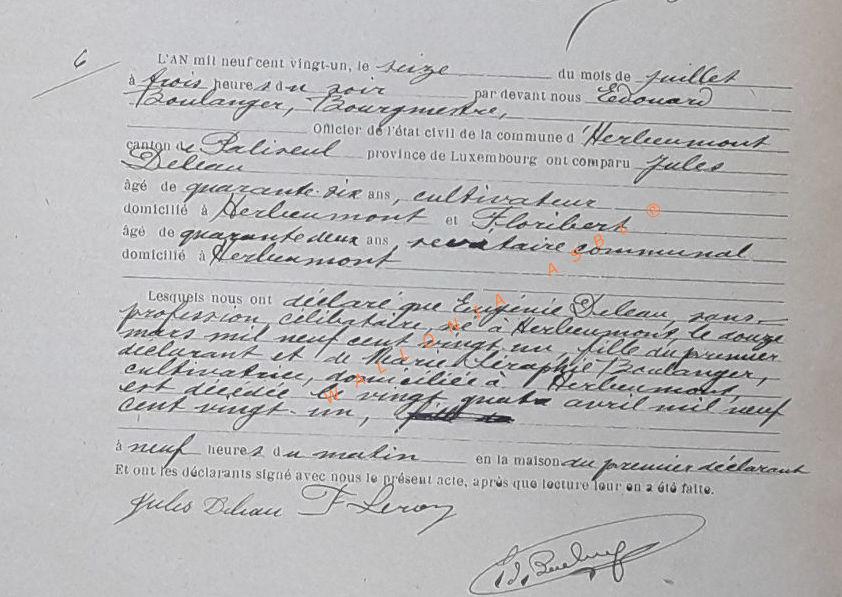 6
L'AN mil neuf cent vingt-un, le seize du mois de juillet
à trois heures du soir par devant nous Edouard
Boulanger, Bourgmestre,
Officier de l'état civil de la commune d'Herbeumont
canton de Paliseul province de Luxembourg ont comparu Jules
Deleau
âgé de quarante-six ans, cultivateur
domicilié à Herbeumont et Floribert
âgé de quarante deux ans, secrétaire communal
domicilié à Herbeumont
Lesquels nous ont déclaré que Eugénie Deleau, sans
profession, célibataire, né à Herbeumont, le douze
mars mil neuf cent vingt un, fille du premier
déclarant et de Marie Séraphie Boulanger,
cultivatrice, domiciliée à Herbeumont,
est décédée le vingt quatre avril mil neuf
cent vingt-un,
à neuf heures du matin en la maison du premier déclarant
Et ont les déclarants signé avec nous le présent acte, après que lecture leur en a été faite.
Jules Deleau F Leroy
WALLONIA ASBL ®